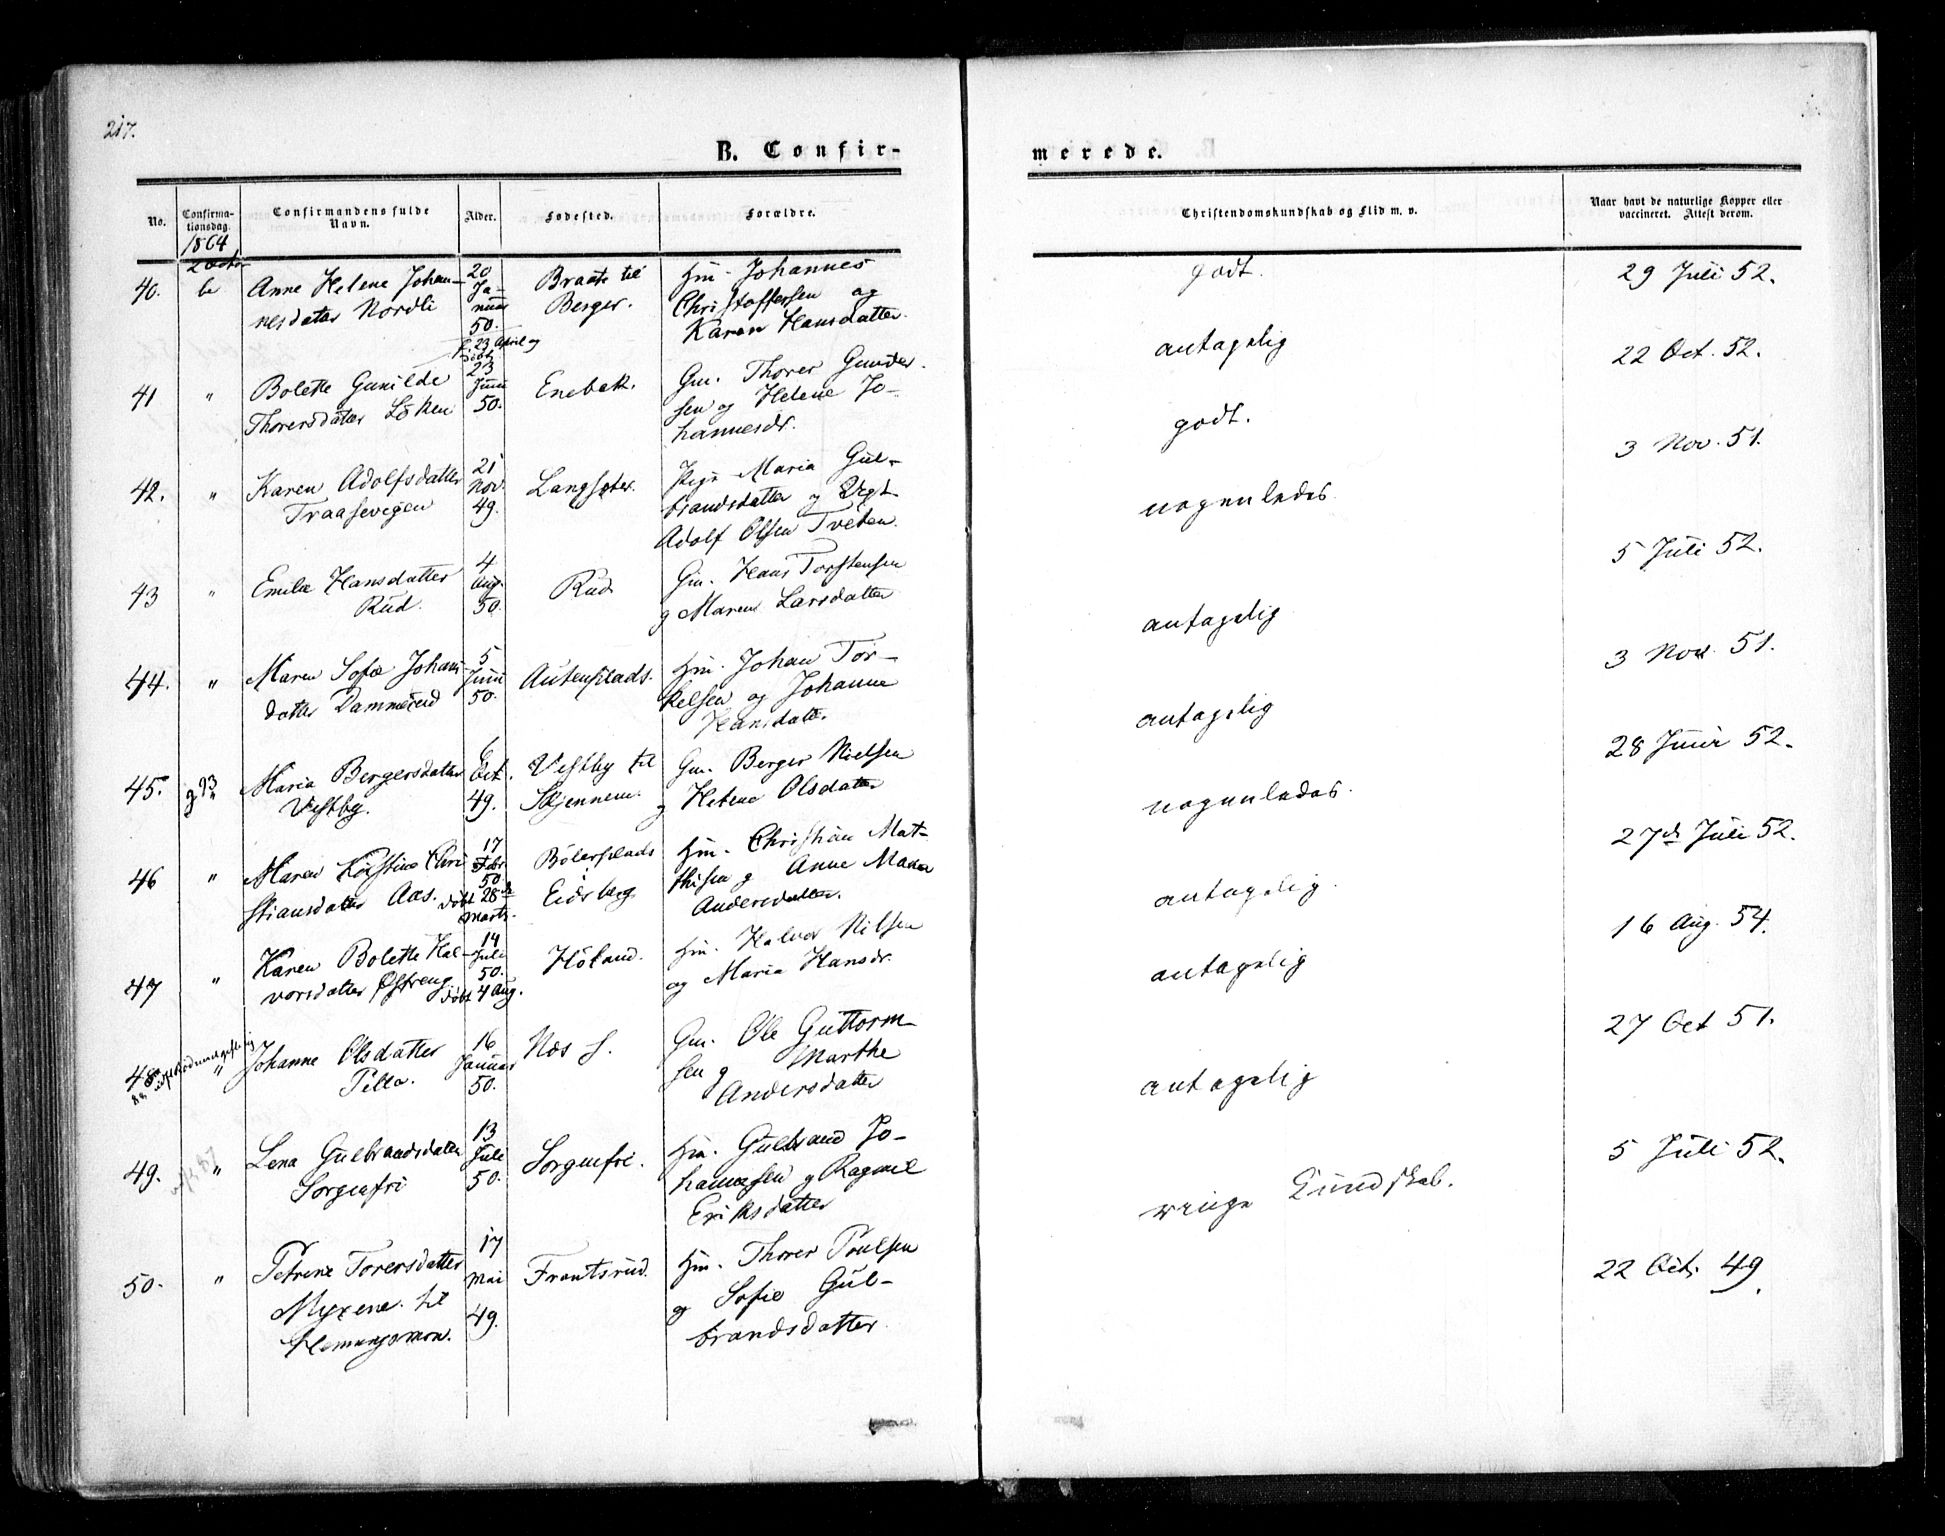 217.
B. Confir-
merede.
No.
Confirma-
tionsdag.
Confirmandens fulde
Navn.
Alder.
Fødested.
Forældre.
Christendomskundskab og Flid m. v.
Naar havt de naturlige Kopper eller
vaccineret. Attest derom.
1864
2 Octo-
ber
40.
Anne Helene Johan-
nesdatter Nordli
20
Ja-
nuar
50.
Braate til
Berger.
Hm. Johannes
Christoffersen og
Karen Hansdatter.
godt.
29 Juli 52.
41
"
Bolette Gunilde
Thorersdatter Løken
f. 23 April og
døbt
23
Juni
50.
Enebak.
Gm. Thorer Gunder-
sen og Helene Jo-
hannesdr.
antagelig
22 Oct. 52.
42.
"
Karen Adolfsdatter
Traasevigen
21
Nov.
49.
Langseter.
Pige Maria Gul-
brandsdatter og
Adolf Olsen Tveten.
godt.
3 Nov. 51.
43
"
Emilie Hansdatter
Rud.
4
Aug.
50.
Rud
Gm. Hans Torstensen
g Maren Larsdatter
nogenledes
5 Juli 52.
44.
"
Maren Sofie Johans-
datter Dammerud
5
Juni
50.
Autenplads.
Hm. Johan Tor-
kelsen og Johanne
Hansdatter
antagelig
3 Nov. 51.
45.
"
Maria Bergersdatter
Vestby.
6
Oct.
49.
Vestby til
Skjennem.
Gm. Berger Nielsen
g Helene Olsdatter
antagelig
28 Juni 52.
46
"
Maren Kirstine Chri-
stiansdatter Aas.
17
Febr
50.
døbt 28de
Marts.
Bølerplads
Eidsberg
Hm. Christian Mat-
thisen g Anne Maria
Andersdatter.
nogenledes.
27de Juli 52.
47
"
Karen Bolette Hal-
vorsdatter Østreng
14
Juli
50.
døbt 4 Aug.
Høland.
Hm. Halvor Nilsen
og Maria Hansdr.
antagelig.
16 Aug. 54.
48
"
Johanne Olsdatter
Pella.
16
Januar
50.
Næs S.
Gm. Ole Guttorm-
sen g Marthe
Andersdatter
antagelig
27 Oct 51.
49.
"
Lena Gulbrandsdatter
Sorgenfri
13
Juli
50.
Sorgenfri.
Hm. Gulbrand Jo-
hannesen g Ragnil
Eriksdatter
antagelig
5 Juli 52.
50.
"
Petrine Torersdatter
Myrene til
17
Mai
49.
Frantsrud.
Hm. Thorer Poulsen
og Sofie Gul-
brandsdatter
ringe Kundskab.
22 Oct. 49.